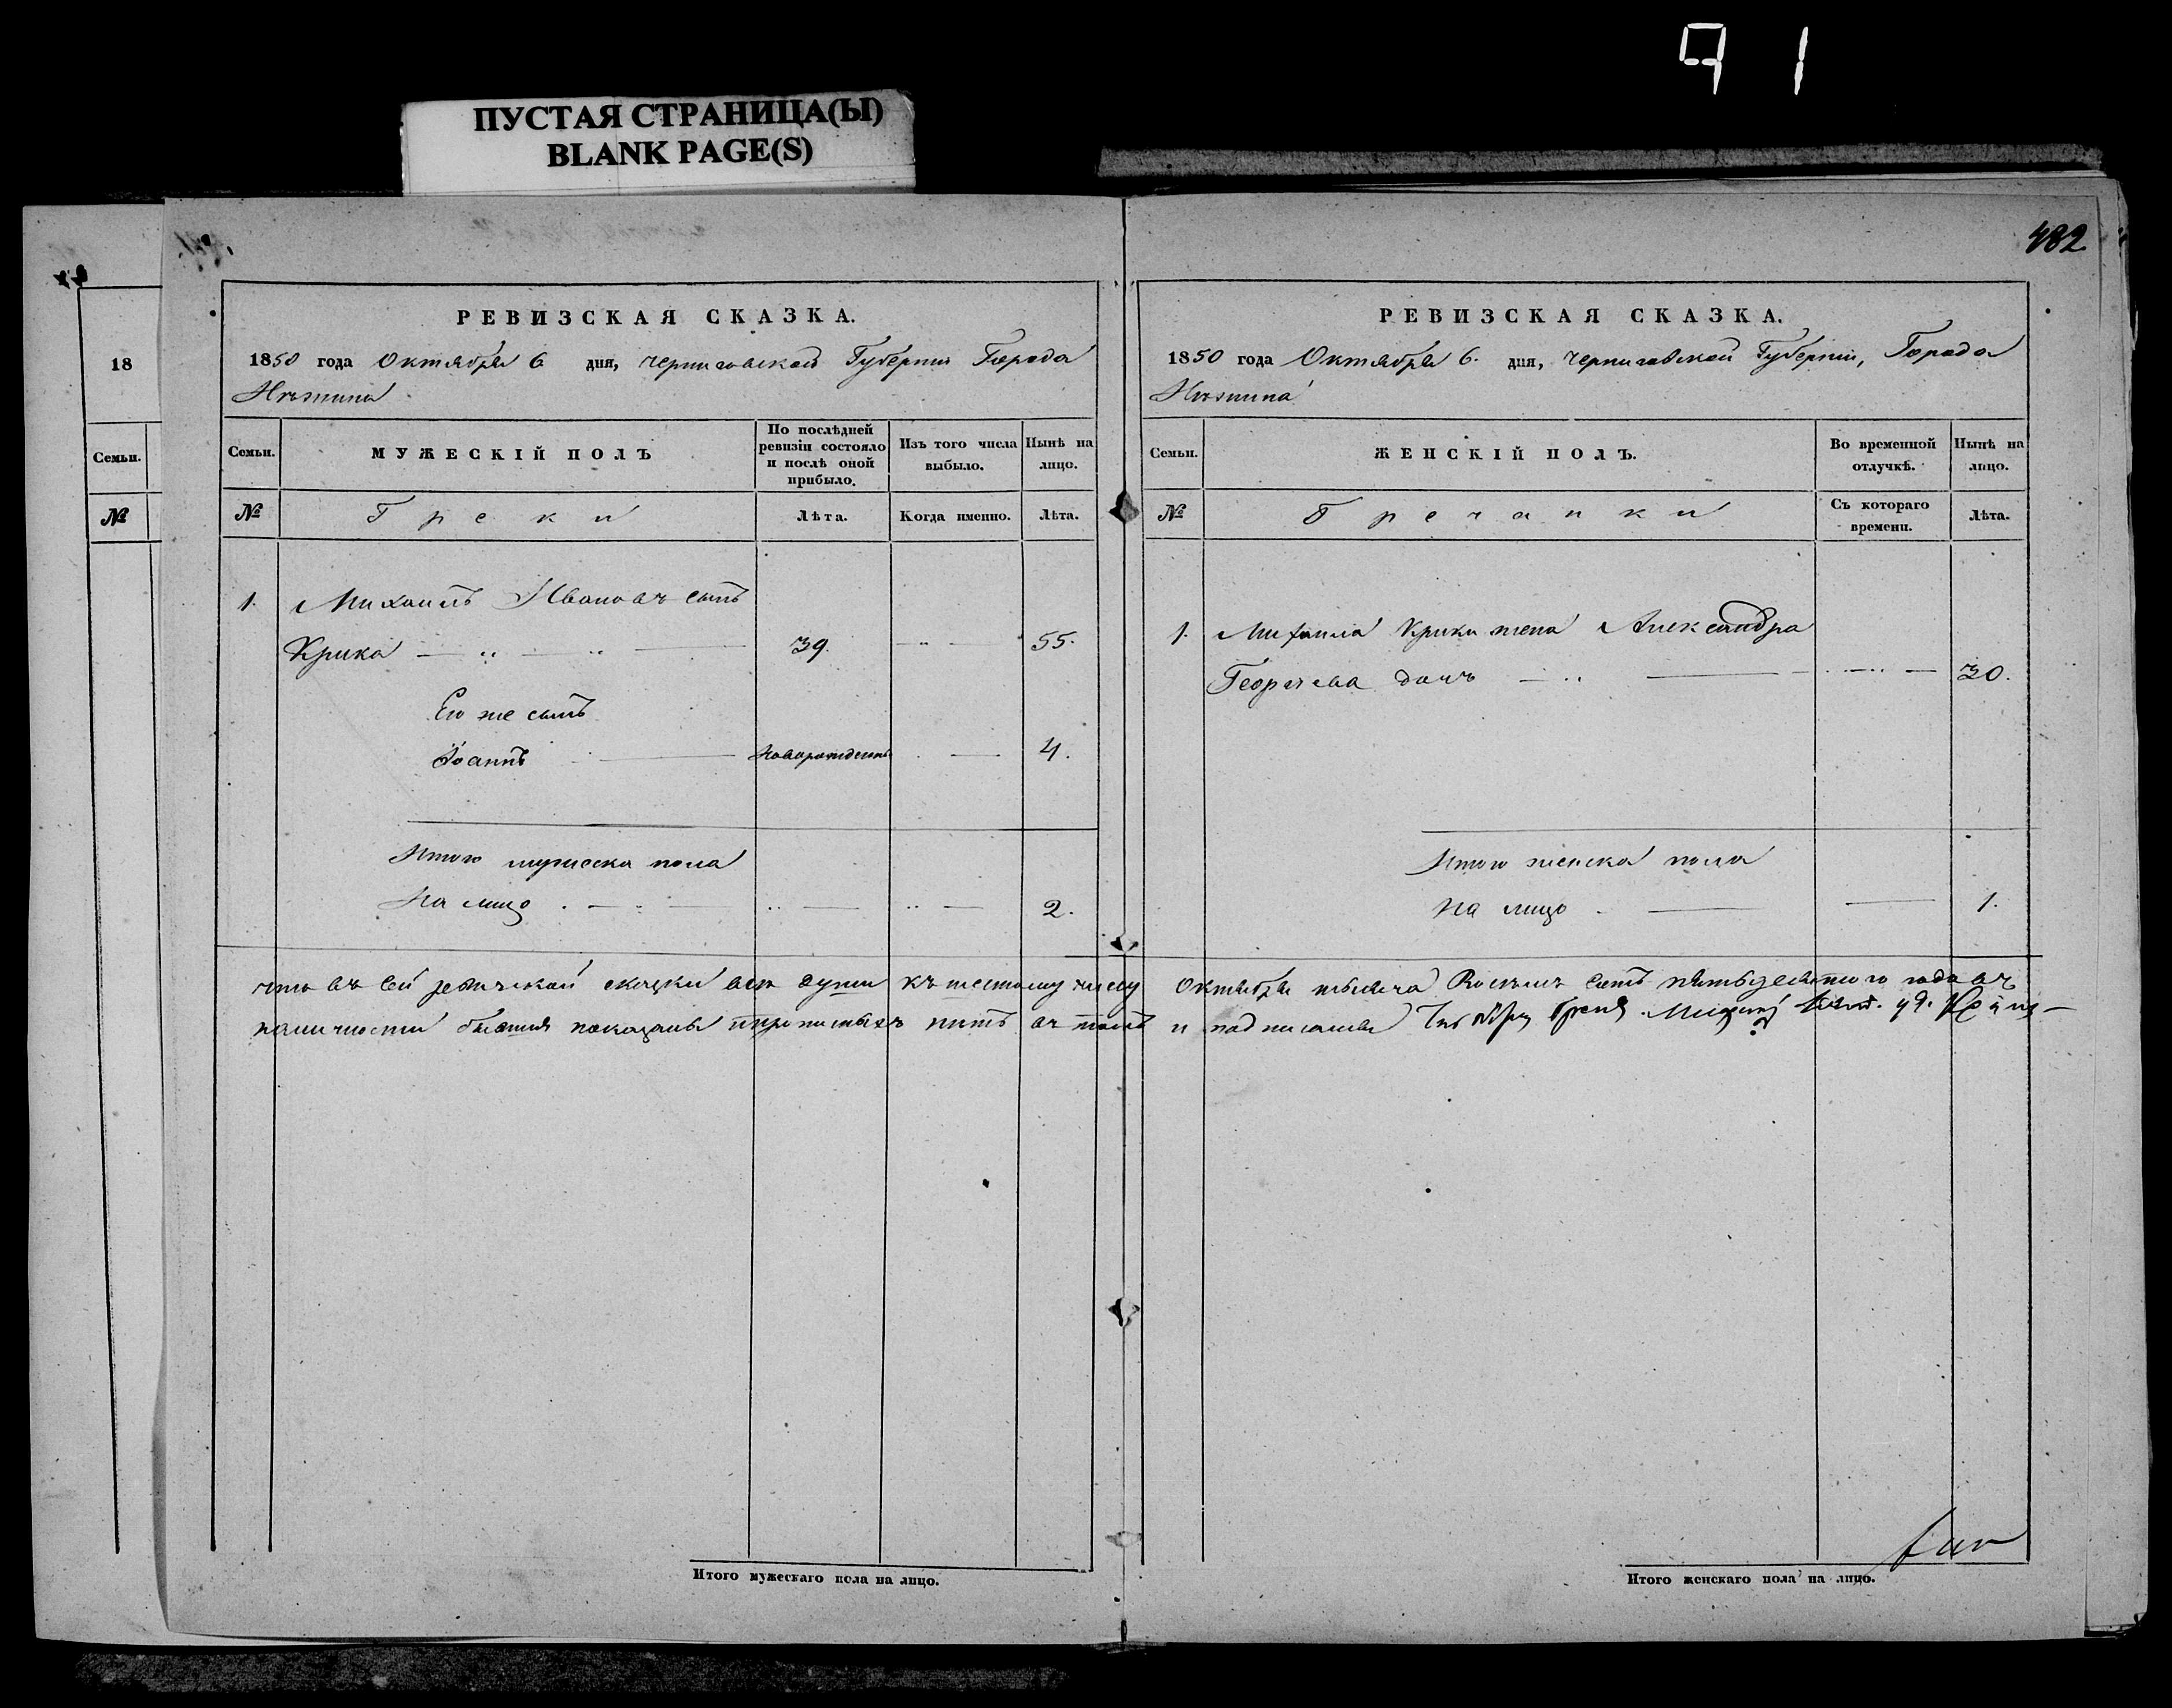 91
ПУСТАЯ СТРАНИЦА(Ы)
BLANK PAGE(S)
482
18
Семьи.
№
РЕВИЗСКАЯ СКАЗКА.
1850 года Октября 6 дня, Черниговской Губернии Города
Нѣжина
Семьи.
МУЖЕСКІЙ ПОЛЪ
По послѣдней ревизіи состояло и послѣ оной прибыло.
Изъ того числа выбыло.
Нынѣ на лицо.
№
Греки
Лѣта.
Когда именно.
Лѣта.
1. Михаилъ Ивановъ сынъ
Крика 39. 55.
Его же сынъ
Іоаннъ Новорожденъ 4.
Итого мужеска пола
На лицо 2.
РЕВИЗСКАЯ СКАЗКА.
1850 года Октября 6. дня, Черниговской Губерніи, Города
Нѣжина
Семьи.
ЖЕНСКІЙ ПОЛЪ.
Во временной отлучкѣ.
Нынѣ на лицо.
№
Гречанки
Съ котораго времени.
Лѣта.
1. Михаила Крики жена Александра
Георгіева дочь 30.
Итого женска пола
На лицо 1.
что въ сей ревизской сказки всѣ души къ шестому числу Октября мѣсяца восемь сотъ пятьдесятого года въ
наличности бывшия показаны и прописныхъ нѣтъ въ томъ и подписался
Итого мужескаго пола на лицо.
Итого женскаго пола на лицо.